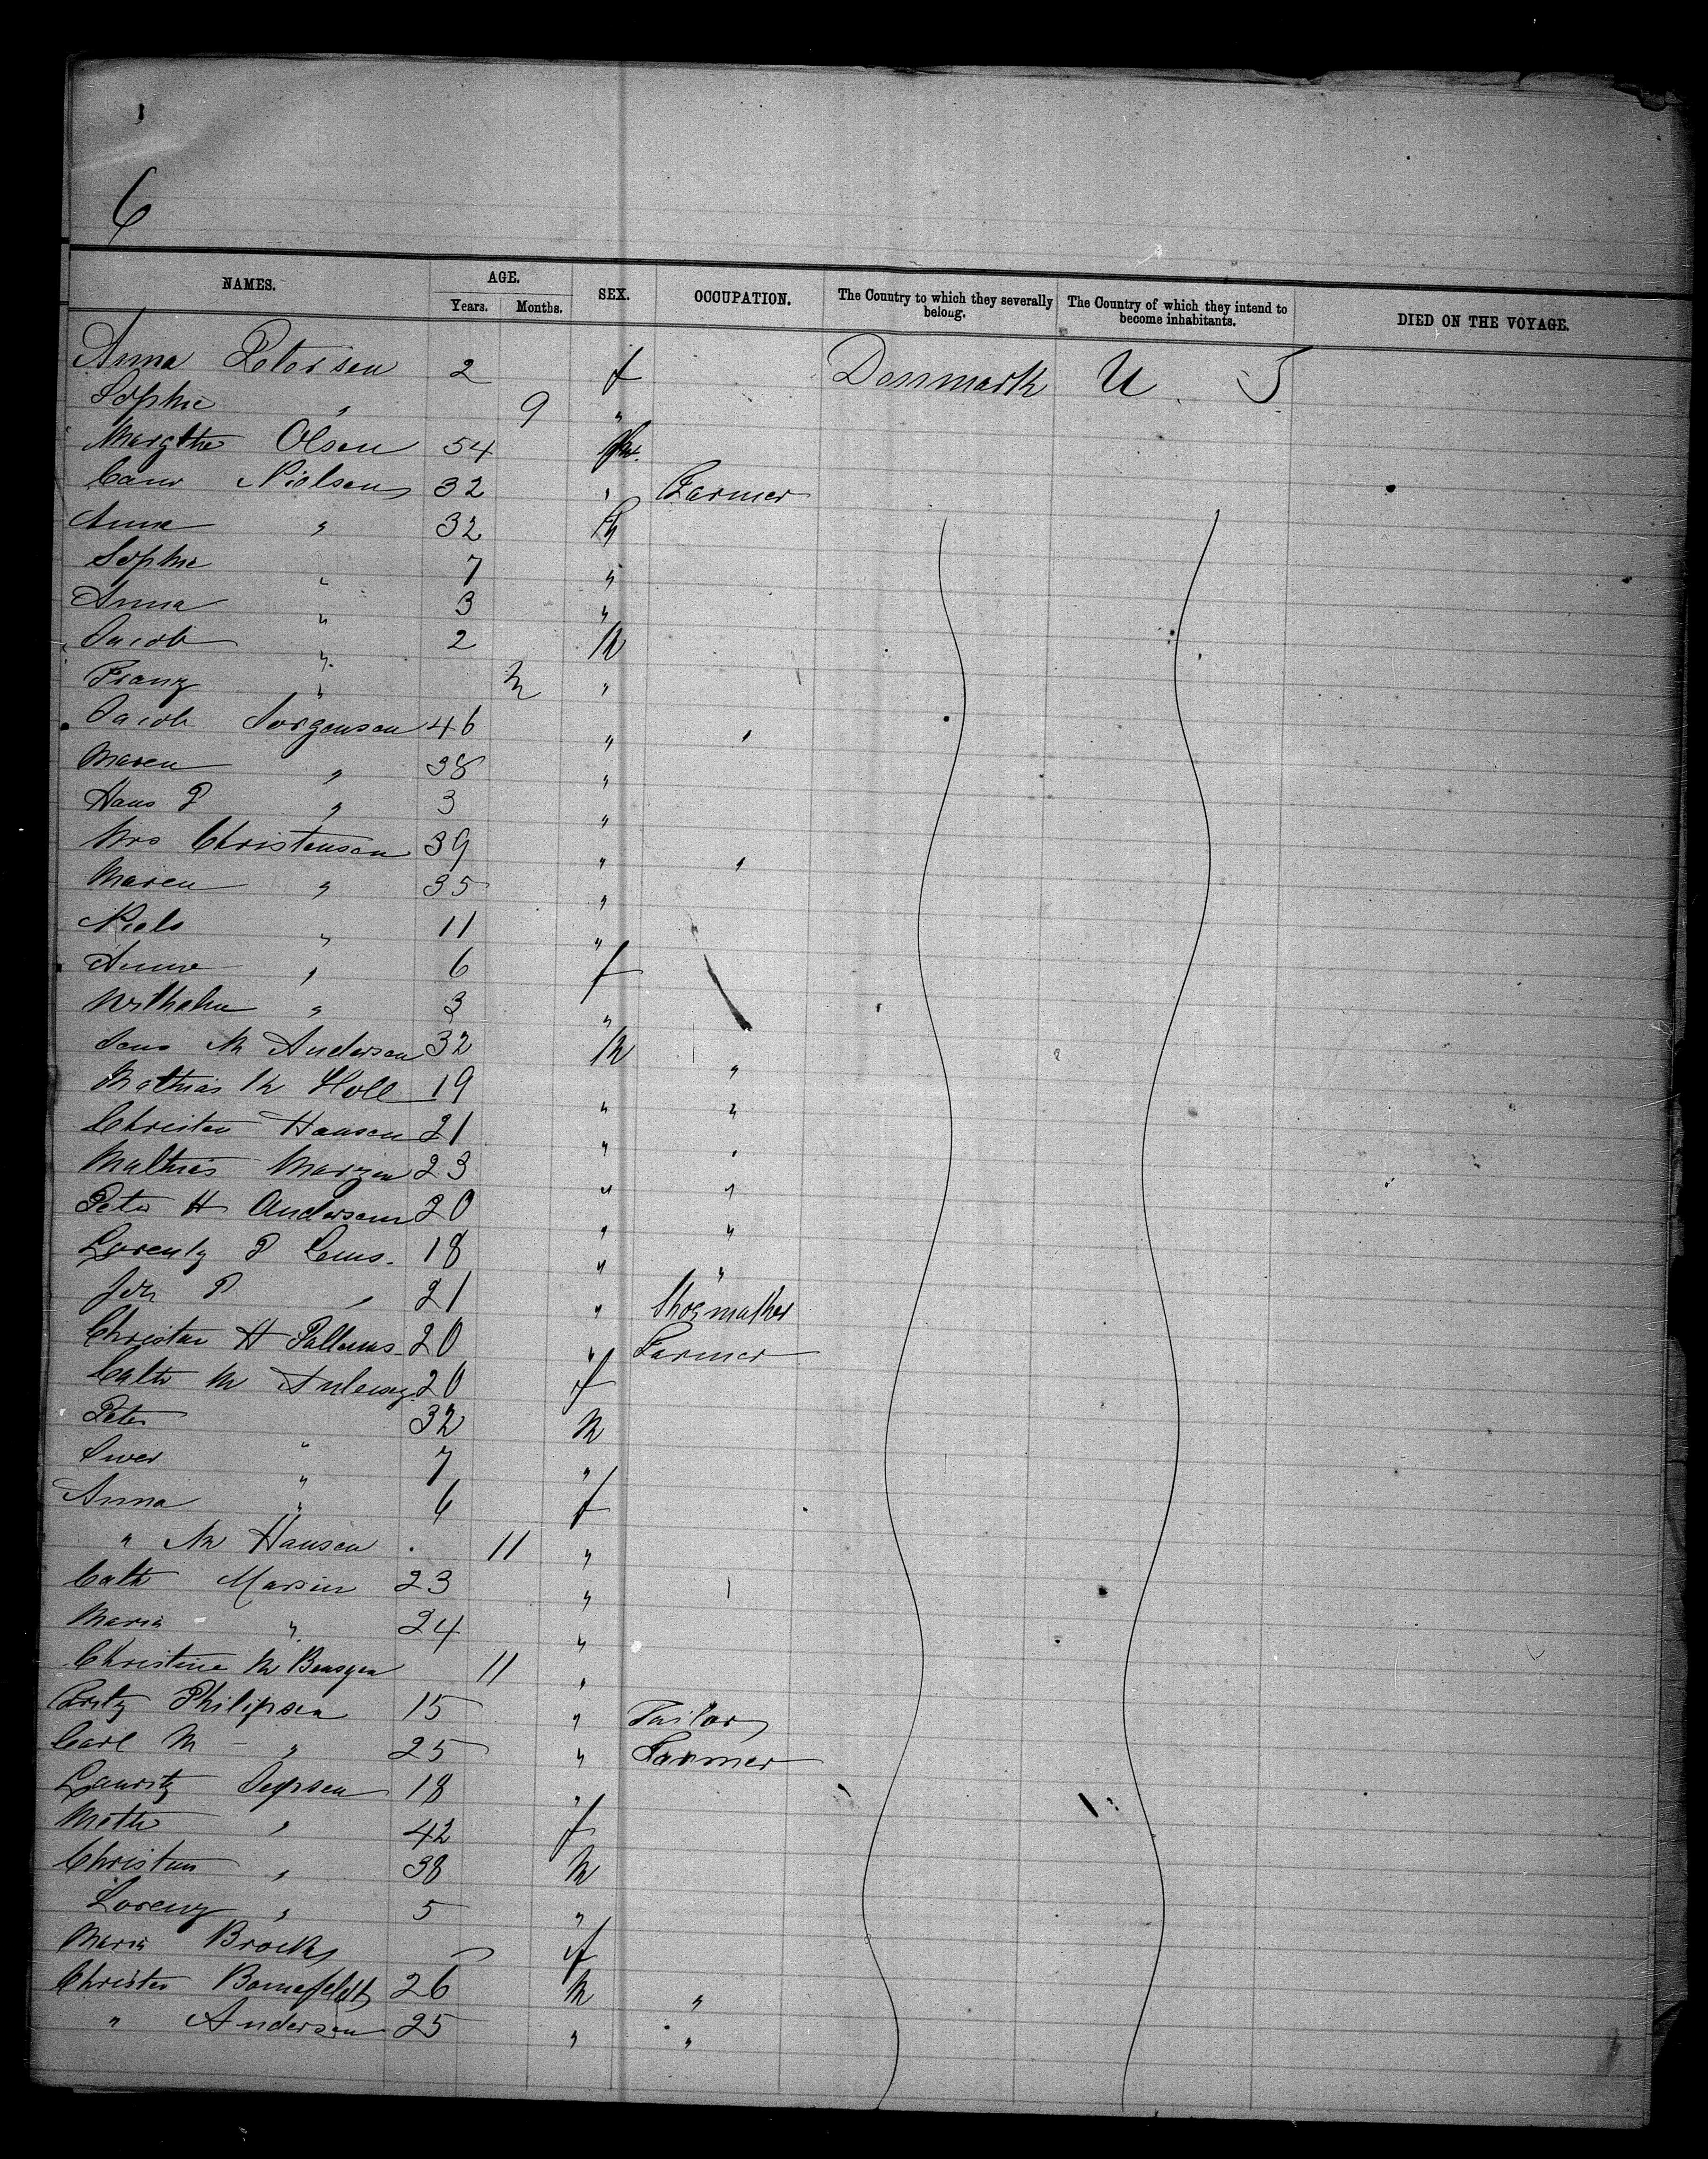 6
NAMES. AGE. SEX. OCCUPATION. The Country to which they severally belong. The Country of which they intend to become inhabitants. DIED ON THE VOYAGE.
Years. Months.
Anna Petersen 2 f Denmark U. S
Sophie " 9 "
Margthe Olsen 54
Nielsen 32 " Farmer
Anna " 32
Sophie " 7 "
Anna " 3 "
Jacob " 2 M
Franz " "
Jacob Jorgensen 46 " "
Maren " 38 "
Hans P " 3 "
Christensen 39 " "
Maren " 35 "
Niels " 11 "
Anne " 6 f
Wilhelm " 3 "
Jens M Anderson 32 M "
Mathias M Holl 19 " "
Christen Hansen 21 " "
Mathias 23 " "
Peter H Andersen 20 " "
Lorentz P 18 " "
P " 21 " Shoemaker
Christian H 20 " Farmer
Cath M 20 f
Peter " 32 M
Iwer " 7 "
Anna " 6 f
" M Hansen 11 "
Cath 23 "
Maria " 24 "
Christine M 11 "
Philipsen 15 " Tailor
Carl M " 25 " Farmer
Lauritz Jepsen 18 "
Meth " 42 f
Christian " 38 M
Lorenz " 5 "
Maria Brocks f
Christen Bonnefeldt 26 M "
" Andersen 25 " "